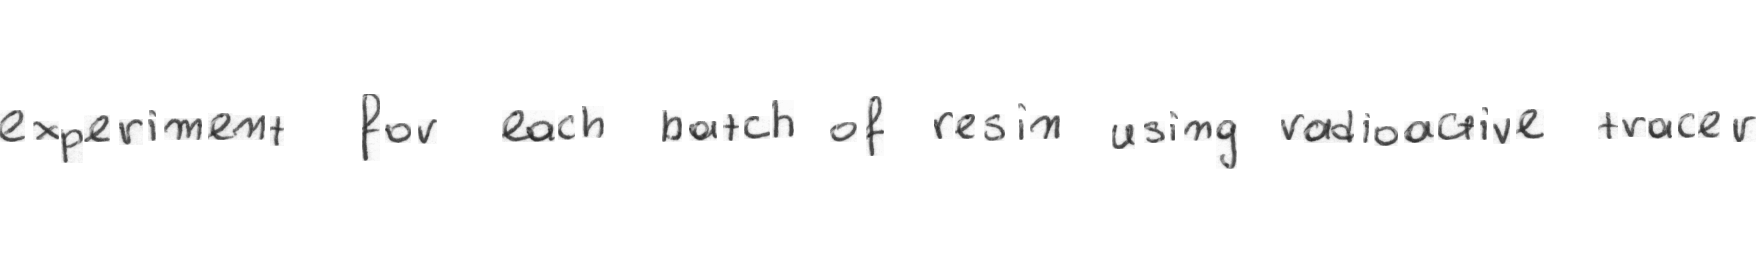 experiment for each batch of resin using radioactive tracer